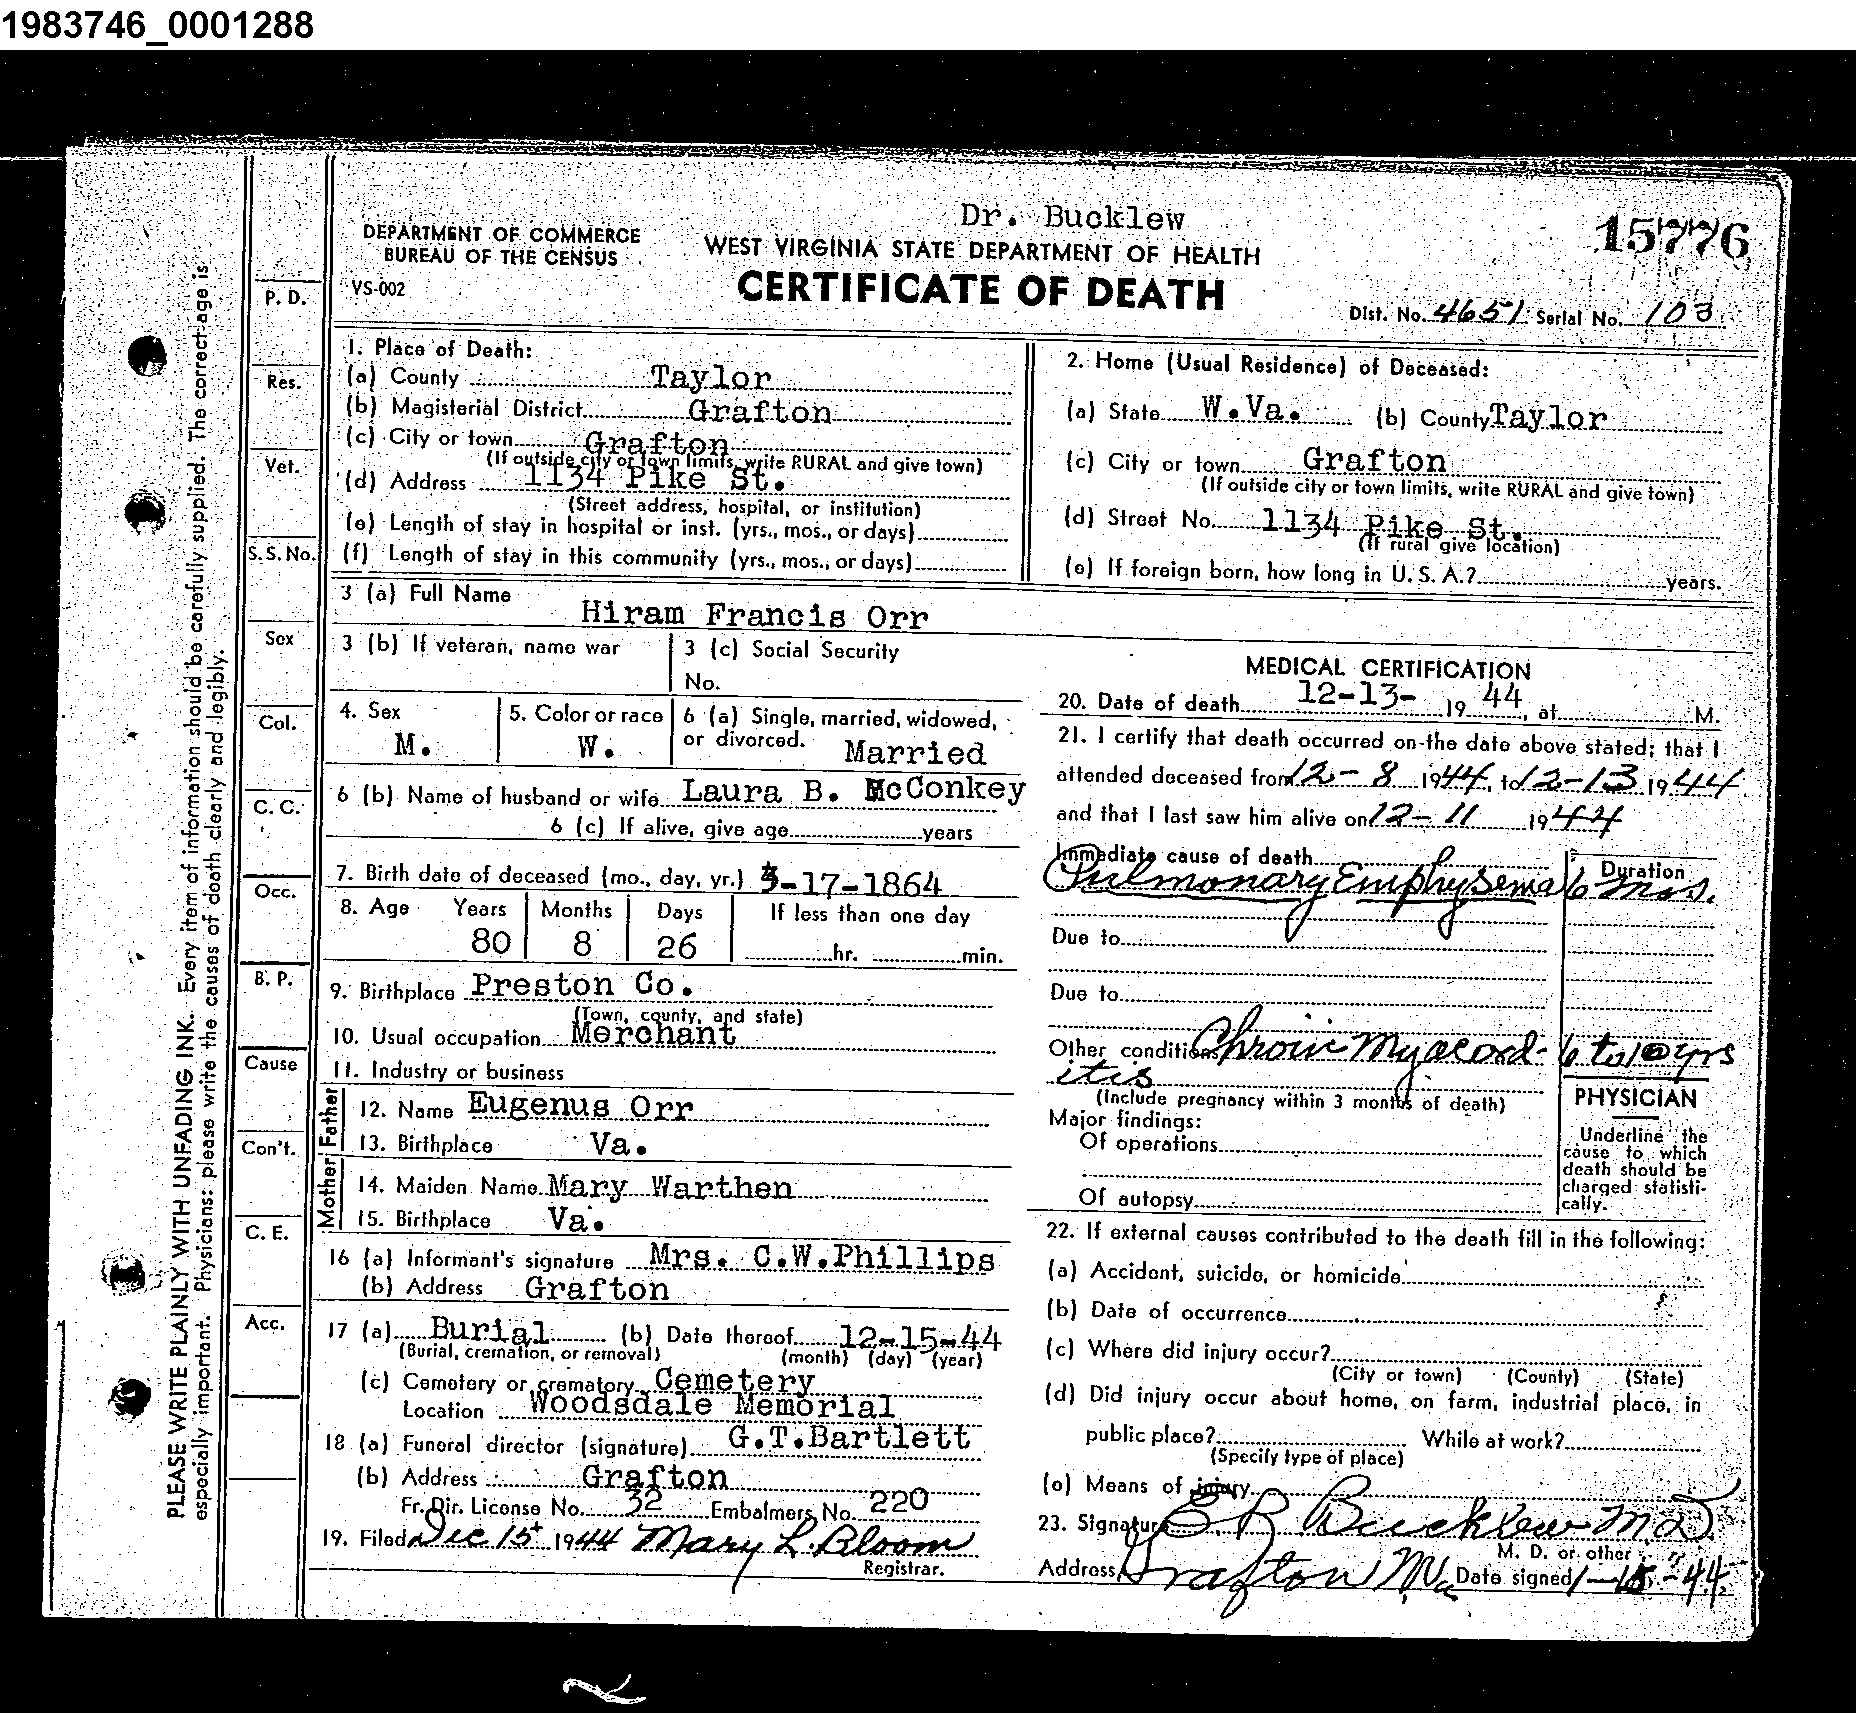 1983746_0001288
Dr. Bucklew
DEPARTMENT OF COMMERCE
BUREAU OF THE CENSUS
WEST VIRGINIA STATE DEPARTMENT OF HEALTH
15776
VS-002
CERTIFICATE OF DEATH
Dist. No. 4651 Serial No. 103
PLEASE WRITE PLAINLY WITH UNFADING INK. Every item of information should be carefully supplied. The correct age is
especially important. Physicians: please write the causes of death clearly and legibly.
P. D.
Res.
Vet.
S. S. No.
Sex
Col.
C. C.
Occ.
B. P.
Cause
Con't.
C. E.
Acc.
1. Place of Death:
(a) County Taylor
(b) Magisterial District Grafton
(c) City or town Grafton
(If outside city or town limits, write RURAL and give town)
(d) Address 1134 Pike St.
(Street address, hospital, or institution)
(e) Length of stay in hospital or inst. (yrs., mos., or days)
(f) Length of stay in this community (yrs., mos., or days)
2. Home (Usual Residence) of Deceased:
(a) State W.Va. (b) County Taylor
(c) City or town Grafton
(If outside city or town limits, write RURAL and give town)
(d) Street No. 1134 Pike St.
(If rural give location)
(e) If foreign born, how long in U. S. A.? years.
3 (a) Full Name Hiram Francis Orr
3 (b) If veteran, name war
3 (c) Social Security
No.
4. Sex M.
5. Color or race W.
6 (a) Single, married, widowed,
or divorced. Married
6 (b) Name of husband or wife Laura B. McConkey
6 (c) If alive, give age years
7. Birth date of deceased (mo., day, yr.) -17-1864
8. Age Years Months Days If less than one day
80 8 26 hr. min.
9. Birthplace Preston Co.
(Town, county, and state)
10. Usual occupation Merchant
11. Industry or business
Father
12. Name Eugenus Orr
13. Birthplace Va.
Mother
14. Maiden Name Mary Warthen
15. Birthplace Va.
16 (a) Informant's signature Mrs. C.W.Phillips
(b) Address Grafton
17 (a) Burial (b) Date thereof 12-15-44
(Burial, cremation, or removal) (month) (day) (year)
(c) Cemetery or crematory Cemetery
Location Woodsdale Memorial
18 (a) Funeral director (signature) G.T.Bartlett
(b) Address Grafton
Fr. Dir. License No. 32 Embalmers No. 220
19. Filed Dec 15 1944 Mary L. Bloom
Registrar.
MEDICAL CERTIFICATION
20. Date of death 12-13- 19 44, at M.
21. I certify that death occurred on the date above stated; that I
attended deceased from 12-8 1944, to 12-13 1944
and that I last saw him alive on 12-11 1944
Immediate cause of death Duration
Pulmonary Emphysema 6 mos.
Due to
Due to
Other conditions Chronic Myocard- 6 to 10 yrs
itis
(Include pregnancy within 3 months of death)
Major findings:
Of operations
Of autopsy
PHYSICIAN
Underline the
cause to which
death should be
charged statisti-
cally.
22. If external causes contributed to the death fill in the following:
(a) Accident, suicide, or homicide
(b) Date of occurrence
(c) Where did injury occur?
(City or town) (County) (State)
(d) Did injury occur about home, on farm, industrial place, in
public place? While at work?
(Specify type of place)
(e) Means of injury
23. Signature E R Bucklew MD
M. D. or other
Address Grafton W.Va Date signed 1- -44